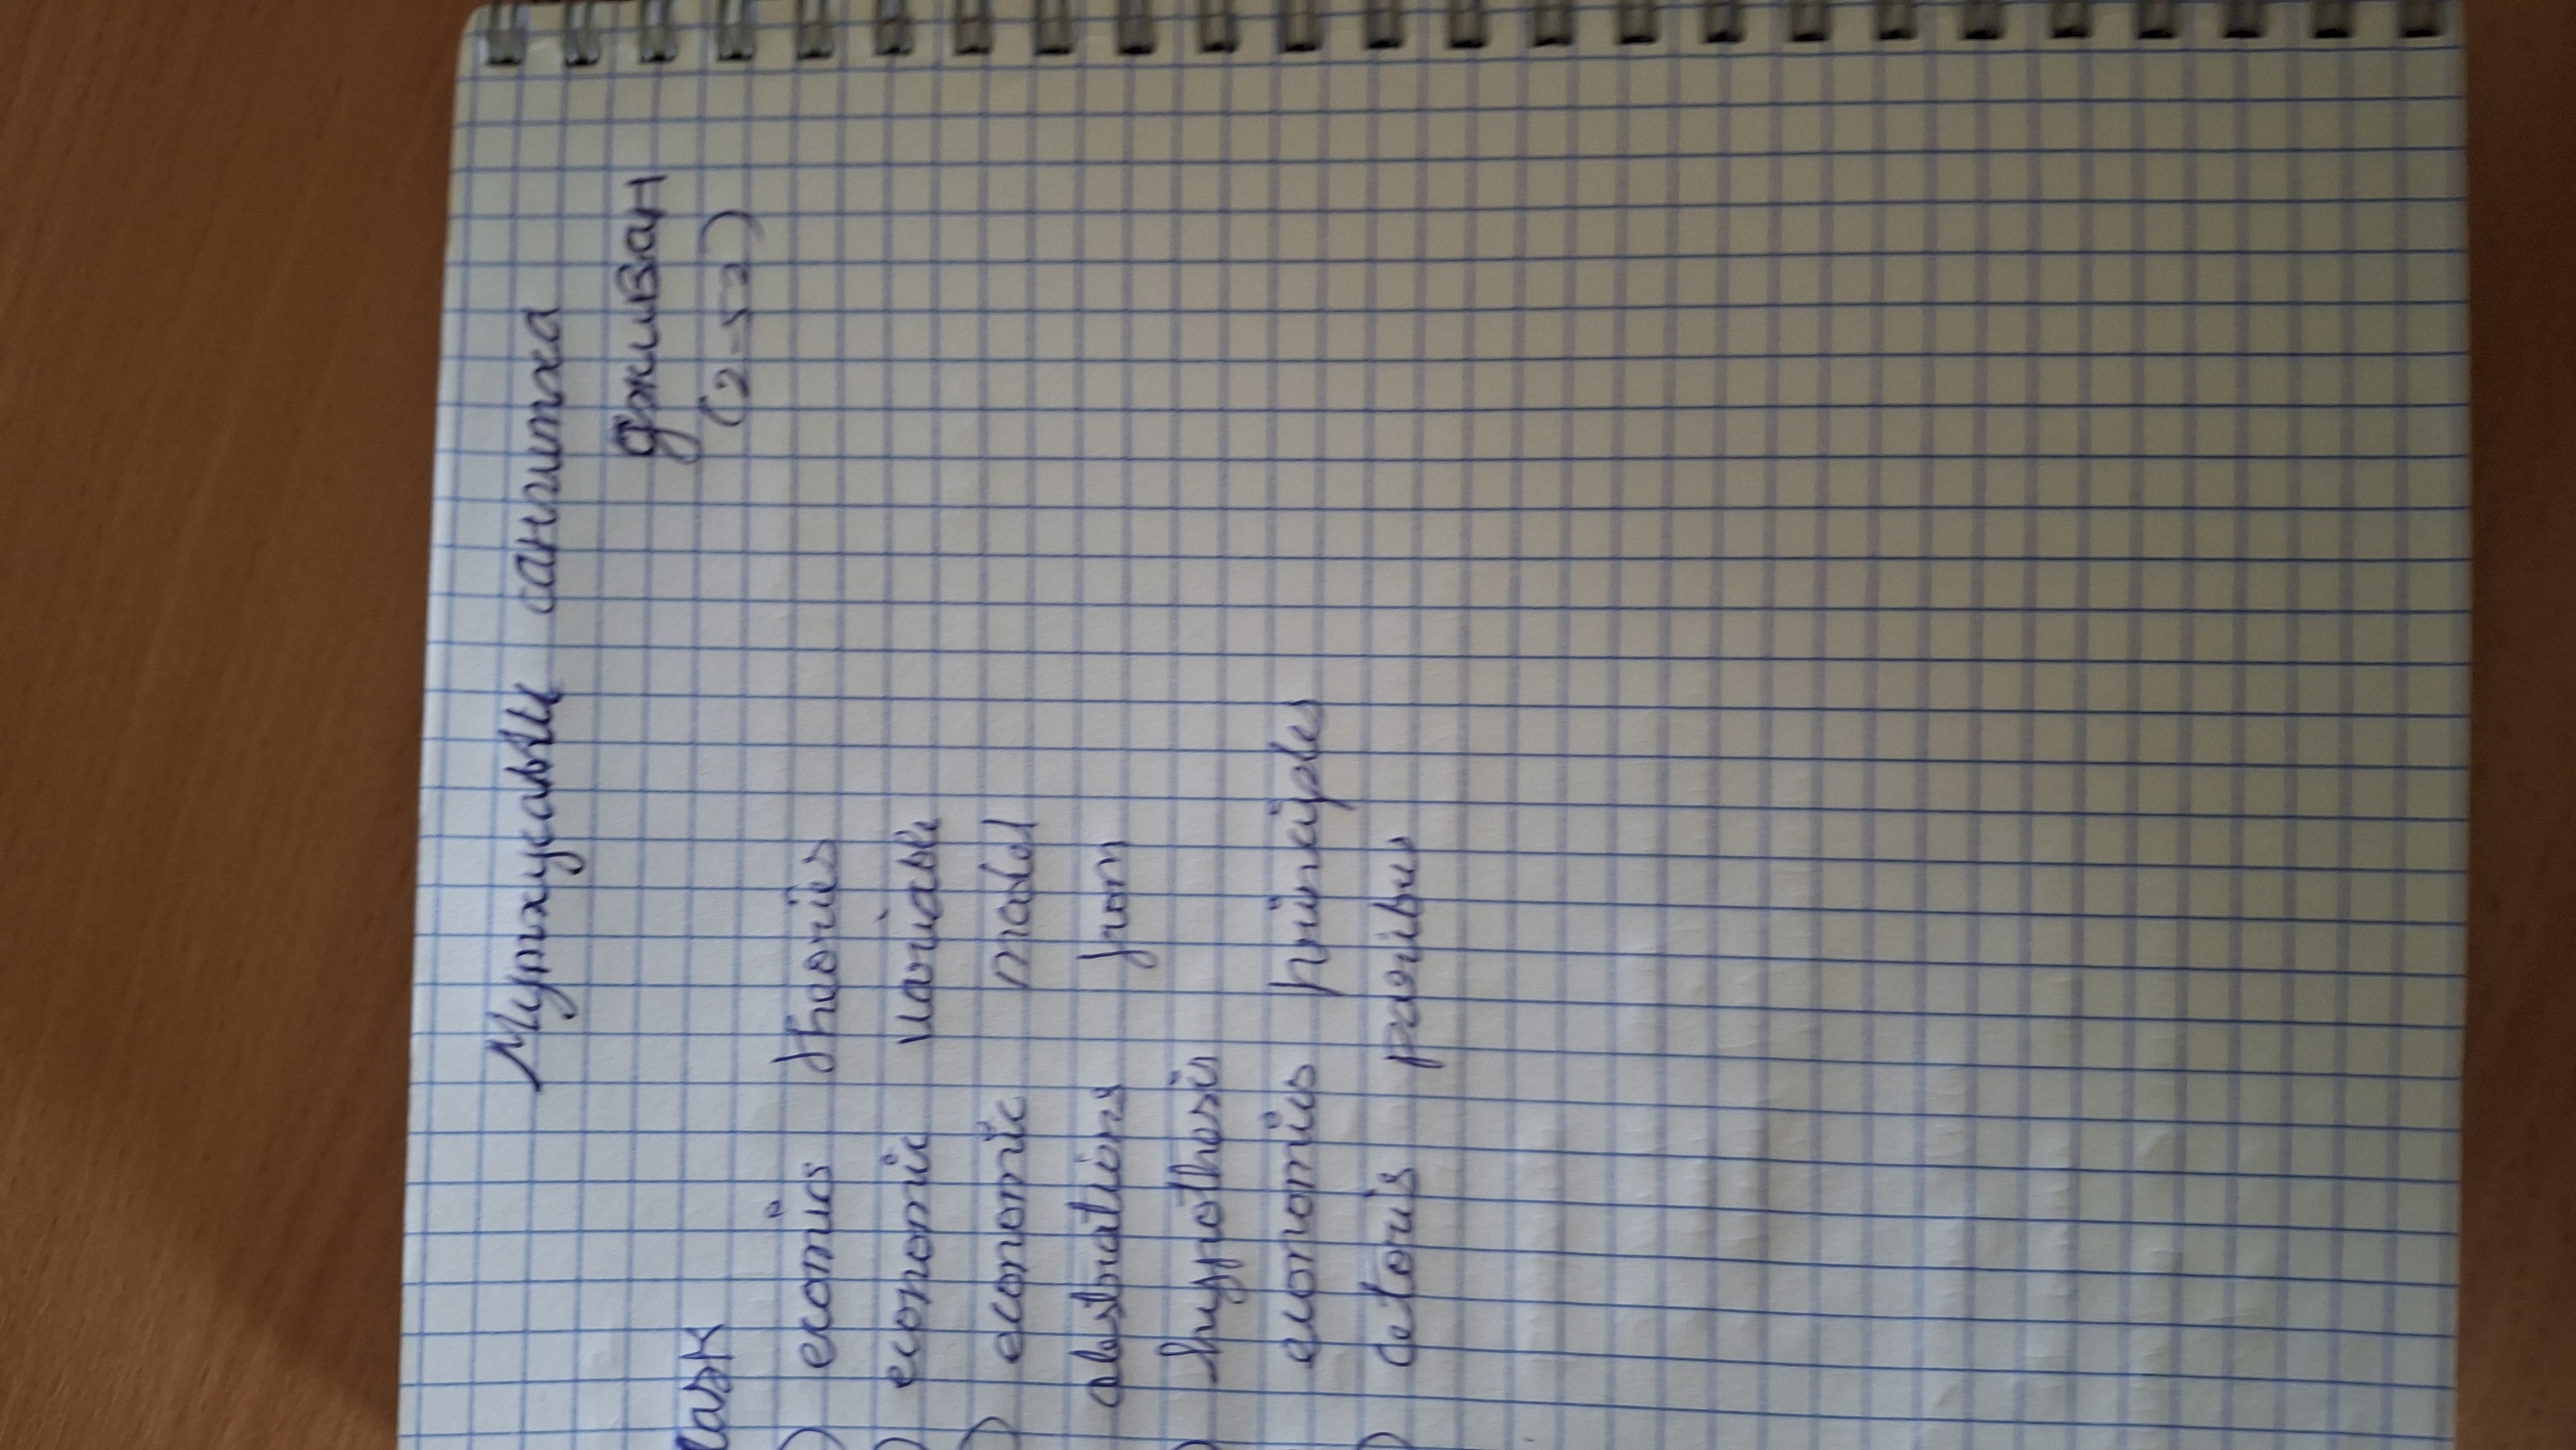 Мутхусами сангитха
Дживан
(2-52)
Task
) ecomics theories
) economic variable
) economic model
abstrations from
) hypothesis
economics principles
) cetoris paribus